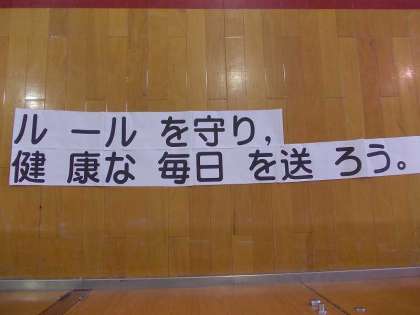 ルールを守り,
健康な毎日を送ろう。